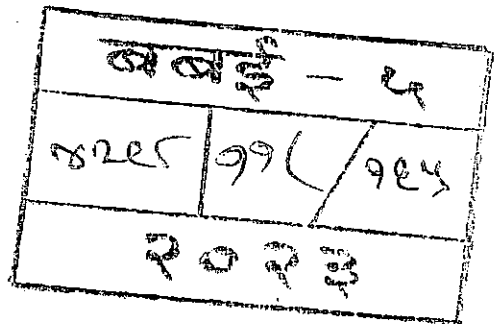 बबई - ५
४२९८ ११८/१९५
२०२३